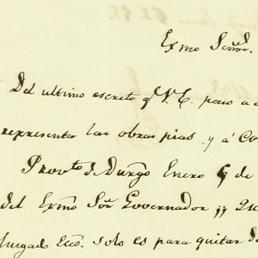 Exmo Señor.
Del ultimo escrito q̃ V.E. paso a
representar las obras pias y á Co
Provto. d. Durgo Enero 6 de
del Exmo Sõr Governador ¡¡ Qu
Juzgado Ecco. solo es para quitar de